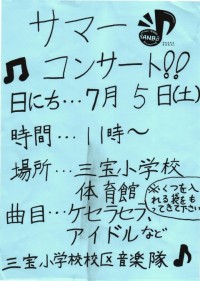 サマー
コンサート!!
日にち…7月5日(土)
時間…11時〜
場所…三宝小学校
体育館
※くつを入
れる袋をも
ってきて下さい
曲目…ケセラセラ、
アイドルなど
三宝小学校校区音楽隊